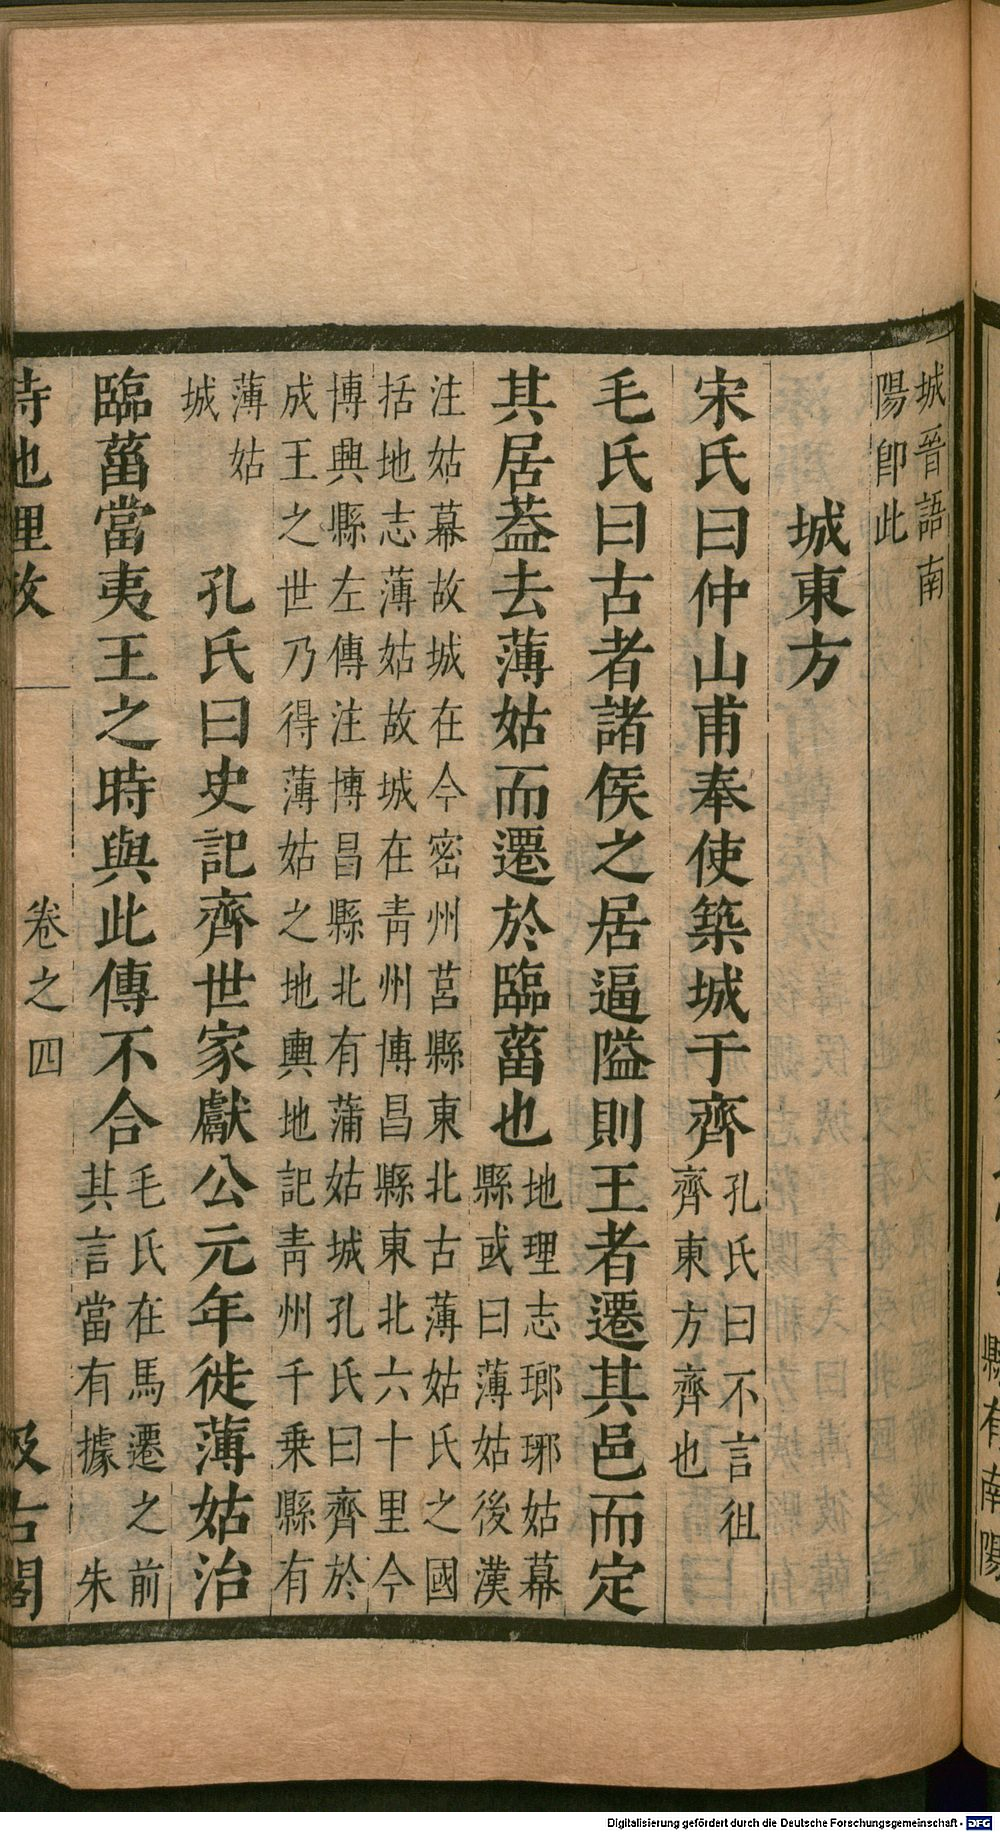 城晉語南
陽卽此
城東方
宋氏曰仲山甫奉使築城于齊
孔氏曰不言徂
齊東方齊也
毛氏曰古者諸侯之居逼隘則王者遷其邑而定
其居葢去薄姑而遷於臨菑也
地理志瑯琊姑幕
縣或曰薄姑後漢
注姑幕故城在今密州莒縣東北古薄姑氏之國
括地志薄姑故城在靑州博昌縣東北六十里今
博興縣左傳注博昌縣北有蒲姑城孔氏曰齊於
成王之世乃得薄姑之地輿地記靑州千乗縣有
薄姑
城
孔氏曰史記齊世家獻公元年徙薄姑治
臨菑當夷王之時與此傳不合
毛氏在馬遷之前
其言當有據 朱
詩地理攷
卷之四
汲古閣
縣有南陽
Digitalisierung gefördert durch die Deutsche Forschungsgemeinschaft - DFG